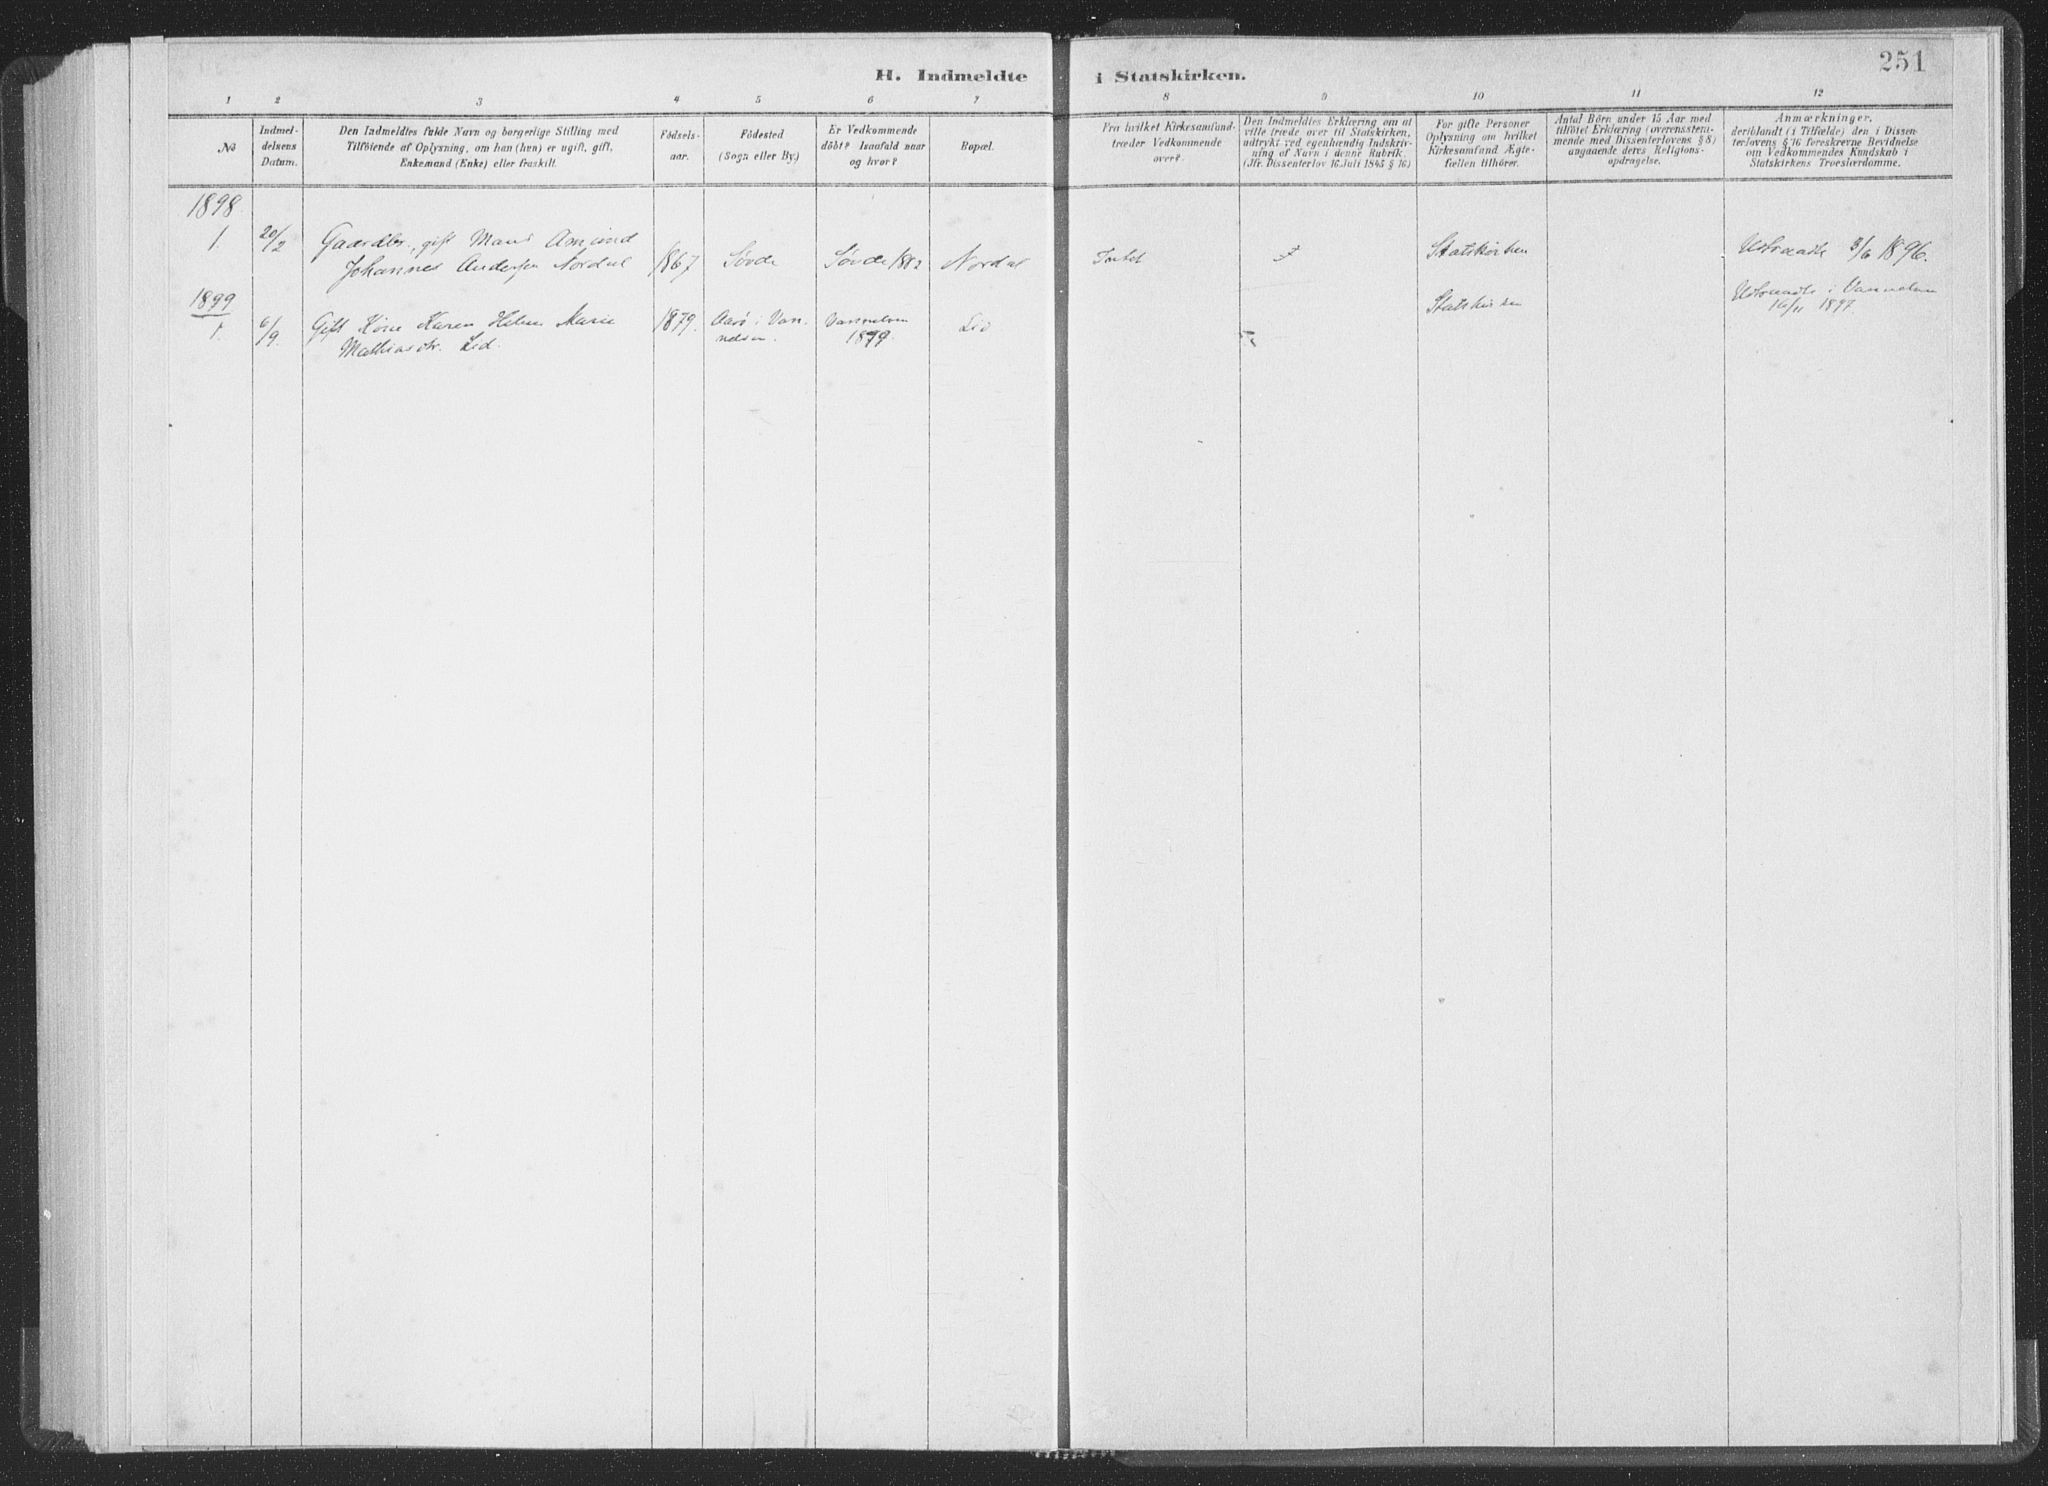 251
H. Indmeldte i Statskirken.
1 2 3 4 5 6 7 8 9 10 11 12
№
Indmel-
delsens
Datum.
Den Indmeldtes fulde Navn og borgerlige Stilling med
Tilföiende af Oplysning, om han (hen) er ugift, gift,
Enkemand (Enke) eller fraskilt.
Födsels-
aar.
Födested
(Sogn eller By.)
Er Vedkommende
döbt? Isaafald naar
og hvor?
Bopæl.
Fra hvilket Kirkesamfund
træder Vedkommende
over?
Den Indmeldtes Erklæring om at
ville træde over til Statskirken,
udtrykt ved egenhændig Indskriv-
ning af Navn i denne Rubrik.
(Jfr. Dissenterlov 16 Juli 1845 § 16)
For gifte Personer
Oplysning om hvilket
Kirkesamfund Ægte-
fællen tilhörer.
Antal Börn under 15 Aar med
tilföiet Erklæring (overensstem-
mende med Dissenterlovens § 8)
angaaende deres Religions-
opdragelse.
Anmærkninger.
deriblandt (i Tilfælde) den i Dissen-
terlovens § 16 foreskrevne Bevidnelse
om Vedkommendes Kundskab i
Statskirkens Troeslærdomme.
1898
1. 20/2 Gaardbr., gift Mand Amund
Johannes Andersen Nordal 1867 Søvde Søvde 1882 Nordal Intet Statskirken Udtraadt 3/6 1896.
1899
1. 6/9 Gift Kone Karen Helene Marie
Mathiasdtr. Lid. 1879. Aarø i Van-
nelven. Vannelven
1879. Lid Statskirken Udtraadt i Vannelven
16/11 1897.